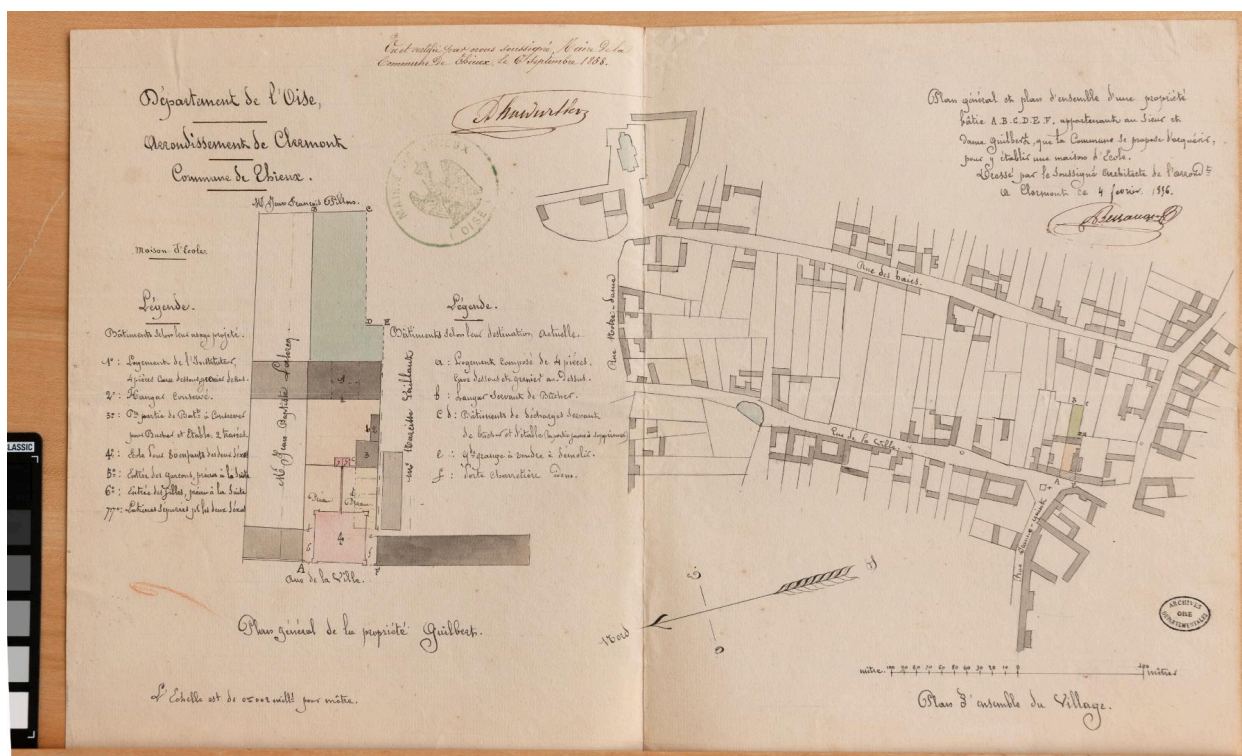 Vu et certifié par nous soussigné, Maire de la
Commune de Thieux, le 6 Septembre 1858.
MAIRIE THIEUX
OISE
Département de l'Oise,
Arrondissement de Clermont
Commune de Thieux.
Maison d'Ecole.
Légende.
Bâtiments selon leur usage projeté.
1º : Logement de l'Instituteur,
4 pièces Cave dessous, grenier dessus.
2º : Hangar Conservé.
3º : Pie partie de Batt à Conserver
pour Bucher et Etable, 2 travées.
4º : Ecole pour 80 enfants des deux Sexes
5º : Entrée des garçons, préau à la suite
6º : Entrée des filles, préau à la Suite
7º : Latrines séparées pr les deux Sexes
Mr Jean François
B
C
D
E
Mr Jean Baptiste
Mr Narcisse
1
2
3
Préau
Préau
4
A
F
Rue de la Ville.
Légende.
Bâtiments selon leur destination actuelle.
a : Logement composé de 4 pièces.
Cave dessous et grenier au dessus.
b : hangar Servant de Bûcher.
c d : Bâtiments de décharges Servant
de bûcher et d'étable
e : gde grange à vendre à démolir.
f : Porte charretière idem.
Plan général de la propriété Guilbert.
L'Echelle est de 0,002 mill. pour mètre.
Plan général et plan d'ensemble d'une propriété
bâtie A.B.C.D.E.F. appartenant au Sieur et
dame Guilbert, que la Commune se propose d'acquérir,
pour y établir une maison d'Ecole.
Dressé par le Soussigné Architecte de l'arrondt
à Clermont ce 4 février 1856.
Rue des haies.
Rue Notre-Dame
Rue de la Ville
A
Nord
S
E
O
ARCHIVES
OISE
DÉPARTEMENTALES
mètre. 100 90 80 70 60 50 40 30 20 10 0 100 mètres
Plan d'ensemble du Village.
CLASSIC